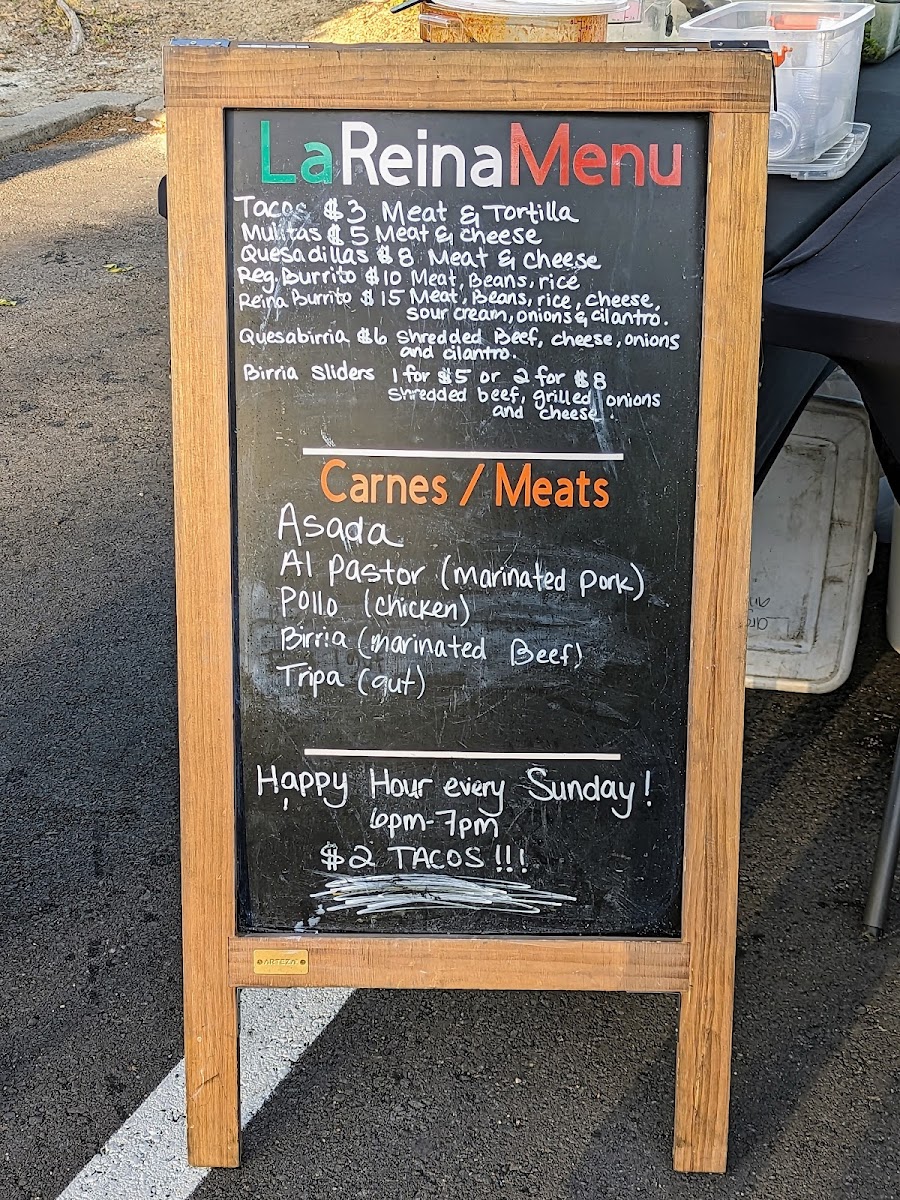 La Reina Menu
Tacos $3 Meat & Tortilla
Mulitas $5 Meat & cheese
Quesadillas $8 Meat & cheese
Reg. Burrito $10 Meat, Beans, rice
Reina Burrito $15 Meat, Beans, rice, cheese,
sour cream, onions & cilantro.
Quesabirria $6 shredded Beef, cheese, onions
and cilantro.
Birria Sliders 1 for $5 or 2 for $8
shredded beef, grilled onions
and cheese.
Carnes / Meats
Asada
Al Pastor (marinated pork)
Pollo (chicken)
Birria (marinated Beef)
Tripa (gut)
Happy Hour every Sunday!
6pm-7pm
$2 TACOS!!!
ARTEZA